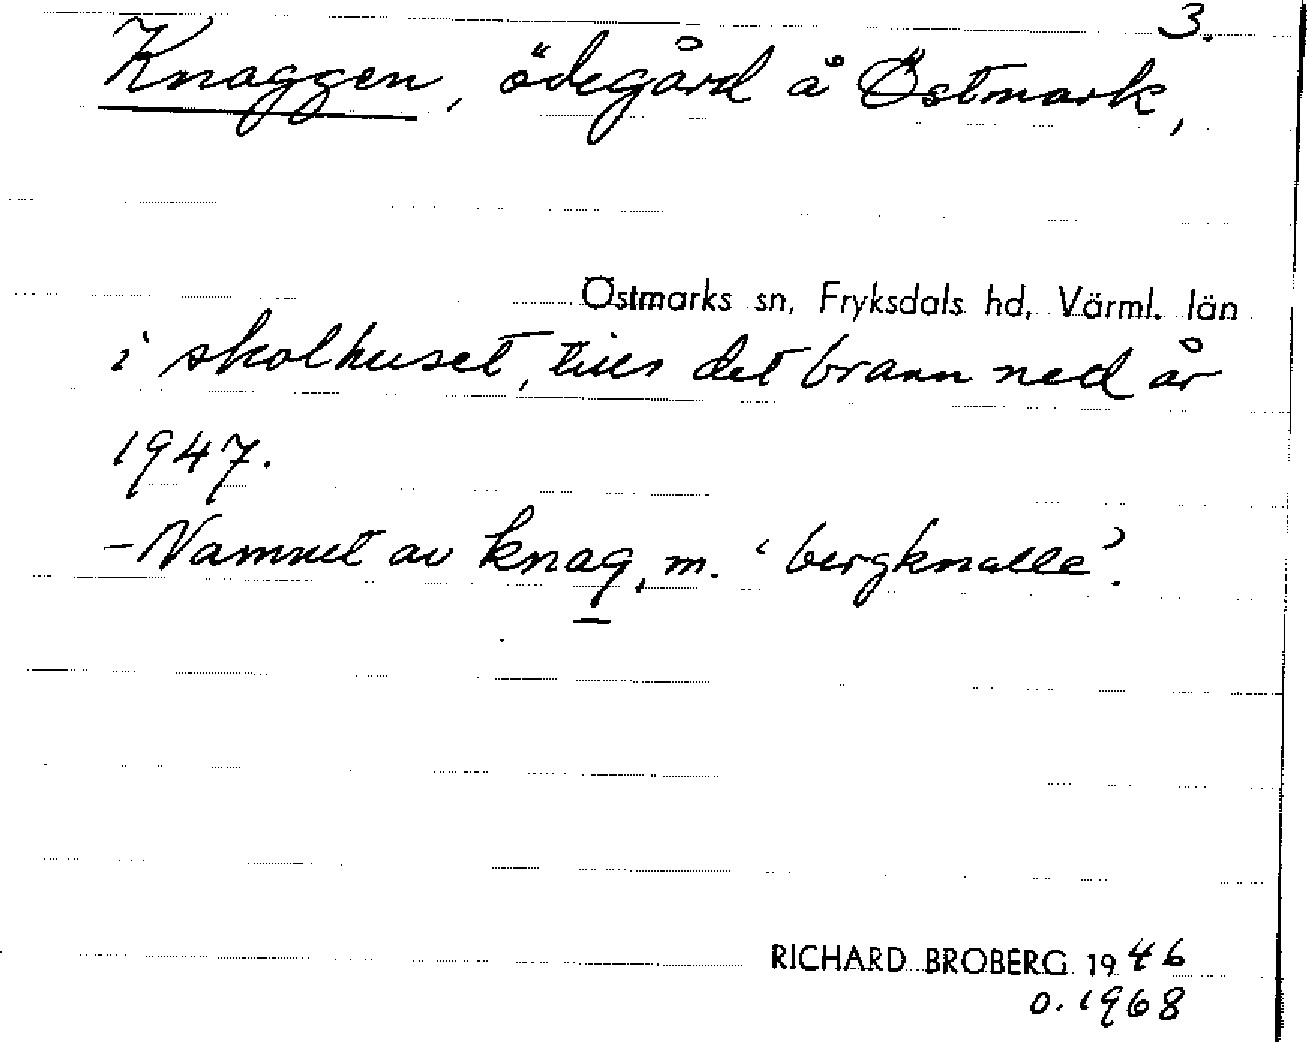 3.
Knaggen, ödegård å Östmark,
Östmarks sn, Fryksdals hd, Värml. län
i skolhuset, tills det brann ned år
1947.
- Namnet av knag, m. 'bergknalle'.
RICHARD BROBERG 1946
o. 1968